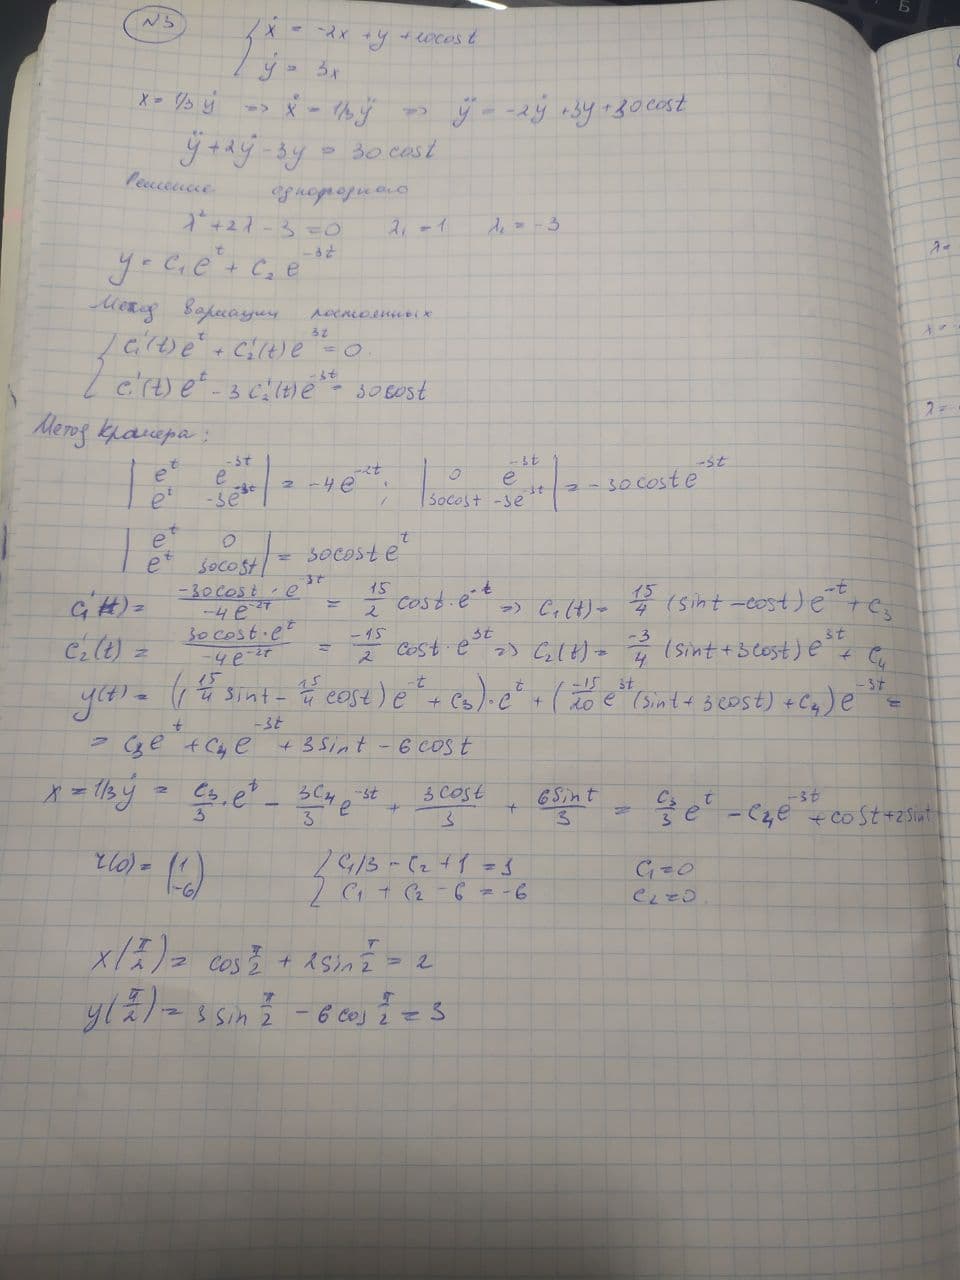 N3
{ ẋ = -2x + y + 10cost
ẏ = 3x
x = 1/3 ẏ => ẋ = 1/3 ÿ => ÿ = -2ẏ + 3y + 30cost
ÿ + 2ẏ - 3y = 30cost
Решение однородного
λ² + 2λ - 3 = 0 λ₁ = 1 λ₂ = -3
y = C₁e^t + C₂e^{-3t}
Метод вариации постоянных
{ C₁'(t)e^t + C₂'(t)e^{3t} = 0.
C₁'(t)e^t - 3C₂'(t)e^{-3t} = 30cost
Метод Крамера:
| e^t e^{-3t} ; e^t -3e^{-3t} | = -4e^{-2t}; | 0 e^{-3t} ; 30cost -3e^{-3t} | = -30cost e^{-3t}
| e^t 0 ; e^t 30cost | = 30cost e^t
C₁'(t) = (-30cost · e^{-3t})/(-4e^{-2t}) = 15/2 cost·e^{-t} => C₁(t) = 15/4 (sint - cost)e^{-t} + C₃
C₂'(t) = (30cost·e^t)/(-4e^{-2t}) = -15/2 cost·e^{3t} => C₂(t) = -3/4 (sint + 3cost)e^{3t} + C₄
y(t) = ((15/4 sint - 15/4 cost)e^{-t} + C₃)·e^t + (-15/20 e^{3t}(sint + 3cost) + C₄)e^{-3t} =
= C₃e^t + C₄e^{-3t} + 3sint - 6cost
x = 1/3 ẏ = C₃/3·e^t - 3C₄/3 e^{-3t} + 3cost/3 + 6sint/3 = C₃/3 e^t - C₄e^{-3t} + cost + 2sint
r(0) = (1 ; -6) { C₁/3 - C₂ + 1 = 1 C₁ = 0
C₁ + C₂ - 6 = -6 C₂ = 0
x(π/2) = cos π/2 + 2sin π/2 = 2
y(π/2) = 3sin π/2 - 6cos π/2 = 3